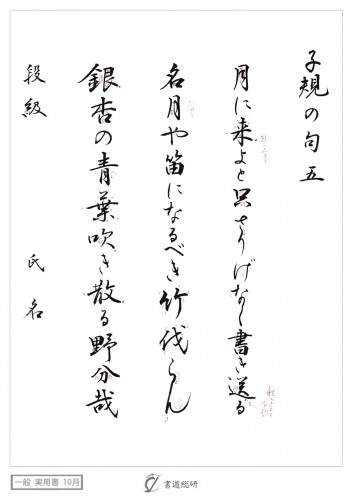 子規の句五
月に来よと只さりげなく書き送る
名月や笛になるべき竹伐らん
銀杏の青葉吹き散る野分哉
段級 氏名
一般 実用書 10月
書道総研